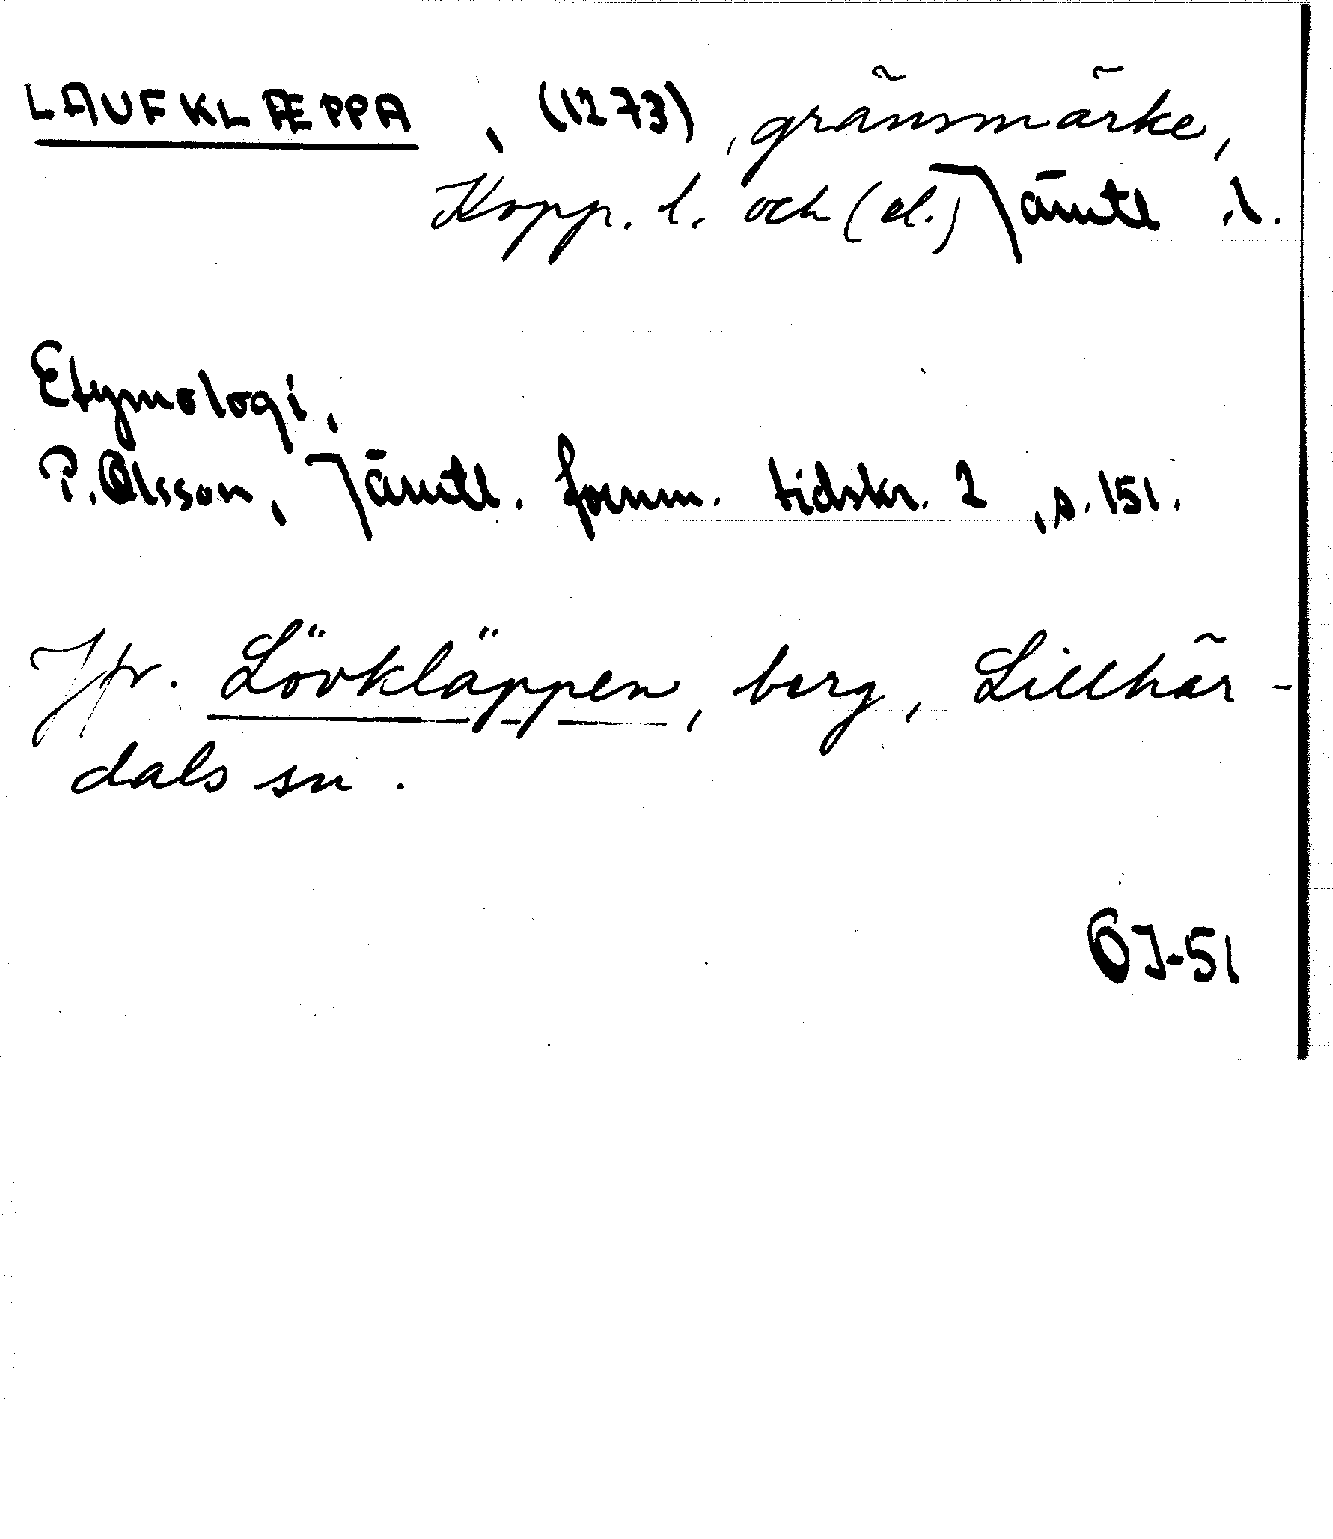 LAUFKLÆPPA, (1273), gränsmärke,
Kopp. l. och (el.) Jämtl. l.
Etymologi.
P. Olsson, Jämtl. fornm. tidskr. 2, s. 151.
Jfr. Lövkläppen, berg, Lillhär-
dals sn.
ÖJ-51